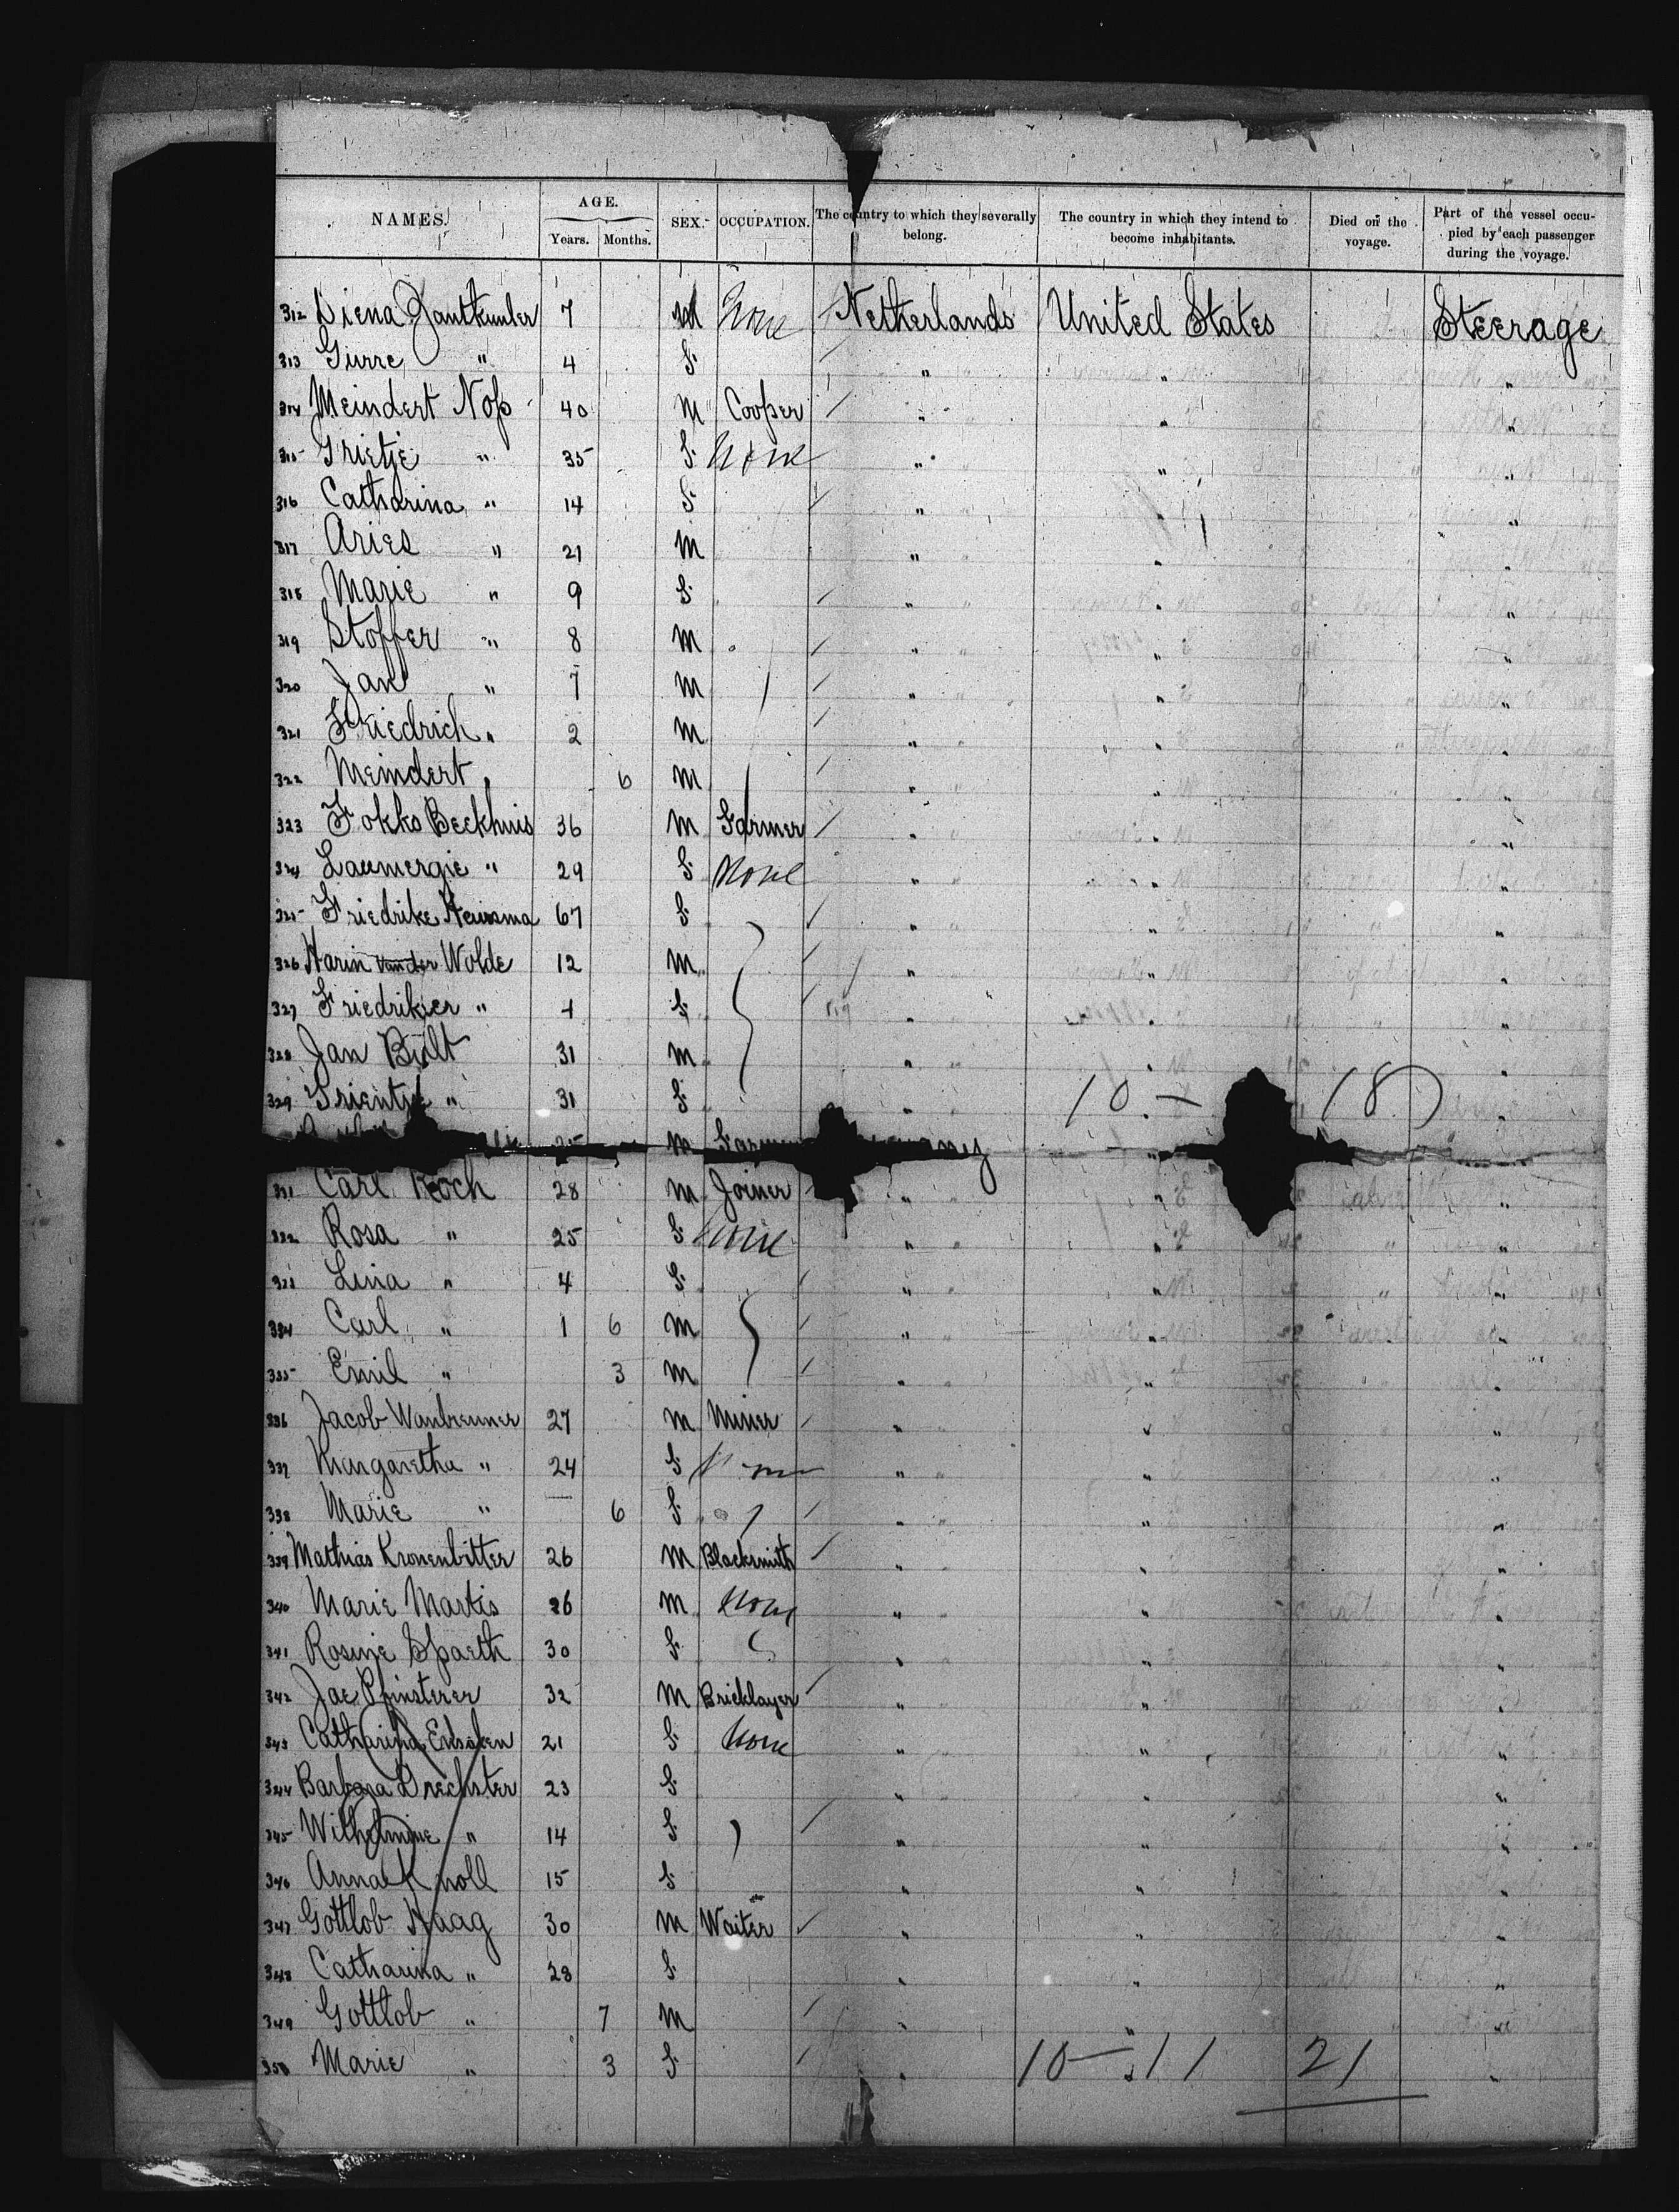 NAMES. AGE. SEX. OCCUPATION. The country to which they severally belong. The country in which they intend to become inhabitants. Died on the voyage. Part of the vessel occupied by each passenger during the voyage.
Years. Months.
312 Diena 7 M None Netherlands United States Steerage
313 " 4 F " " "
314 Meindert Nop 40 M Cooper " " "
315 Grietje " 35 F None " " "
316 Catharina " 14 F " " "
317 Aries " 21 M " " "
318 Marie " 9 F " " "
319 Stoffer " 8 M " " "
320 Jan " 7 M " " "
321 Friedrich " 2 M " " "
322 Meindert " 6 M " " "
323 Fokko Beekhuis 36 M Farmer " " "
324 " 29 F None " " "
325 Friedrike 67 F " " "
326 Harm van der Wolde 12 M " " "
327 " 4 F " " "
328 Jan Bult 31 M " " "
329 Trientje " 31 F " " 10 - 18 "
M
331 Carl Koch 28 M Joiner " " "
332 Rosa " 25 F None " " "
333 Lina " 4 F " " "
334 Carl " 1 6 M " " "
335 Emil " 3 M " " "
336 Jacob 27 M Miner " " "
337 Margaretha " 24 F " " "
338 Marie " 6 F " " "
339 Mathias Kronenbitter 26 M Blacksmith " " "
340 Marie Martis 26 M None " " "
341 Rosine Spaeth 30 F " " "
342 Jac Pfinsterer 32 M Bricklayer " " "
343 Catharina 21 F None " " "
344 Barbara Drechsler 23 F " " "
345 Wilhelmine " 14 F " " "
346 Anna Knoll 15 F " " "
347 Gottlob Haag 30 M Waiter " " "
348 Catharina " 28 F " " "
349 Gottlob " 7 M " " "
350 Marie " 3 F " " 10 - 11 21 "